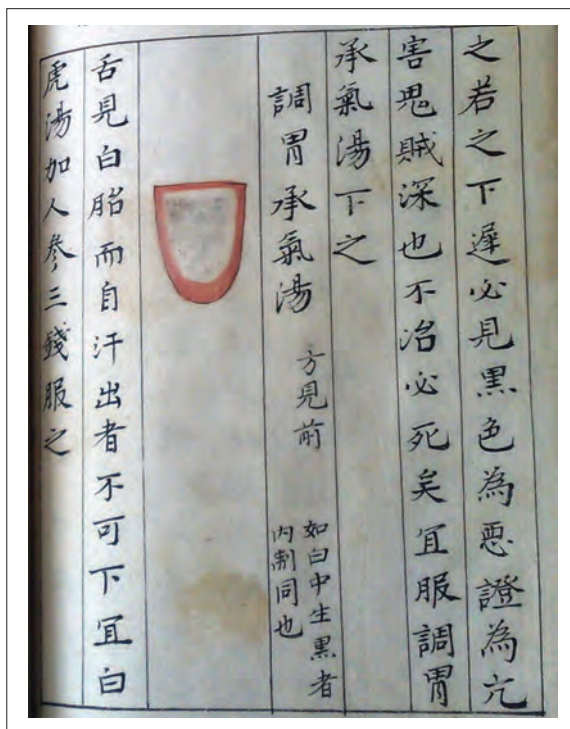 之若之下遲必見黑色為惡證為亢
害鬼賊深也不治必死矣宜服調胃
承氣湯下之
調胃承氣湯 方見前 如白中生黑者
內制同也
舌見白胎而自汗出者不可下宜白
虎湯加人參三錢服之